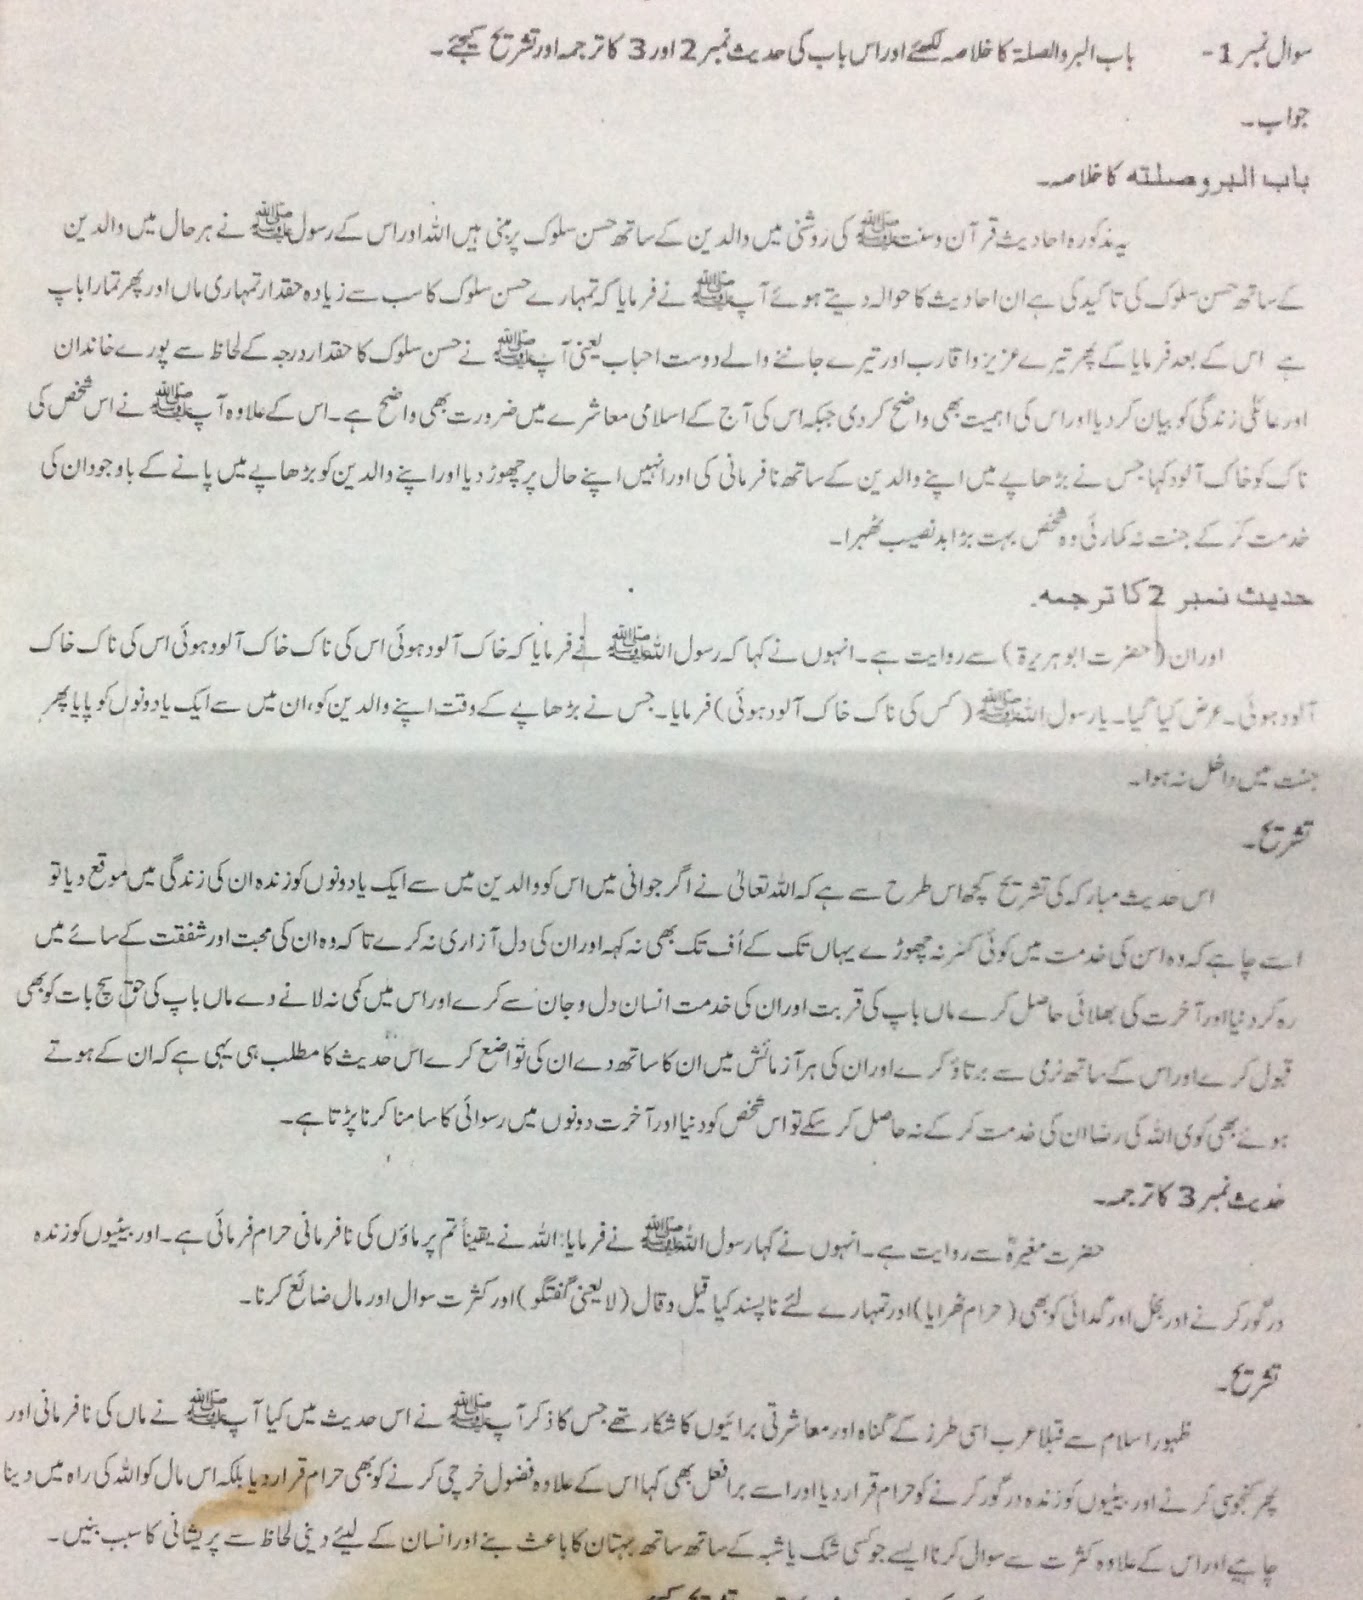 سوال نمبر 1- باب البر والصلۃ کا خلاصہ لکھئے اور اس باب کی حدیث نمبر 2 اور 3 کا ترجمہ اور تشریح کیجئے۔
جواب۔
باب البر وصلتہ کا خلاصہ۔
یہ مذکورہ احادیث قرآن وسنت ﷺ کی روشنی میں والدین کے ساتھ حسن سلوک پر مبنی ہیں اللہ اور اس کے رسول ﷺ نے ہر حال میں والدین
کے ساتھ حسن سلوک کی تاکید کی ہے ان احادیث کا حوالہ دیتے ہوئے آپ ﷺ نے فرمایا کہ تمہارے حسن سلوک کا سب سے زیادہ حقدار تمہاری ماں اور پھر تمارا باپ
ہے اس کے بعد فرمایا کے پھر تیرے عزیز واقارب اور تیرے جاننے والے دوست احباب یعنی آپ ﷺ نے حسن سلوک کا حقدار درجہ کے لحاظ سے پورے خاندان
اور عائلی زندگی کو بیان کر دیا اور اس کی اہمیت بھی واضح کر دی جبکہ اس کی آج کے اسلامی معاشرے میں ضرورت بھی واضح ہے۔ اس کے علاوہ آپ ﷺ نے اس شخص کی
ناک کو خاک آلود کہا جس نے بڑھاپے میں اپنے والدین کے ساتھ نافرمانی کی اور انہیں اپنے حال پر چھوڑ دیا اور اپنے والدین کو بڑھاپے میں پانے کے باوجود ان کی
خدمت کر کے جنت نہ کمار ئی وہ شخص بہت بڑا بد نصیب ٹھہرا۔
حدیث نمبر 2 کا ترجمہ۔
اور ان (حضرت ابو ہریرۃ) سے روایت ہے۔ انہوں نے کہا کہ رسول اللہ ﷺ نے فرمایا کہ خاک آلود ہوئی اس کی ناک خاک آلود ہوئی اس کی ناک خاک
آلود ہوئی۔ عرض کیا گیا۔ یا رسول اللہ ﷺ (کس کی ناک خاک آلود ہوئی) فرمایا۔ جس نے بڑھاپے کے وقت اپنے والدین کو، ان میں سے ایک یا دونوں کو پایا پھر
جنت میں داخل نہ ہوا۔
تشریح۔
اس حدیث مبارکہ کی تشریح کچھ اس طرح سے ہے کہ اللہ تعالیٰ نے اگر جوانی میں اس کو والدین میں سے ایک یا دونوں کو زندہ ان کی زندگی میں موقع دیا تو
اسے چاہے کہ وہ اسن کی خدمت میں کوئی کسر نہ چھوڑے یہاں تک کے اُف تک بھی نہ کہہ اور ان کی دل آزاری نہ کرے تاکہ وہ ان کی محبت اور شفقت کے سائے میں
رہ کر دنیا اور آخرت کی بھلائی حاصل کرے ماں باپ کی قربت اور ان کی خدمت انسان دل و جان سے کرے اور اس میں کمی نہ لانے دے ماں باپ کی حق سچ بات کو بھی
قبول کرے اور اس کے ساتھ نرمی سے برتاؤ کرے اور ان کی ہر آزمائش میں ان کا ساتھ دے ان کی تواضع کرے اس حدیث کا مطلب ہی یہی ہے کہ ان کے ہوتے
ہوئے بھی کوی اللہ کی رضا ان کی خدمت کر کے نہ حاصل کر سکے تو اس شخص کو دنیا اور آخرت دونوں میں رسوائی کا سامنا کرنا پڑتا ہے۔
حدیث نمبر 3 کا ترجمہ۔
حضرت مغیرہؓ سے روایت ہے۔ انہوں نے کہا رسول اللہ ﷺ نے فرمایا: اللہ نے یقیناً تم پر ماؤں کی نافرمانی حرام فرمائی ہے۔ اور بیٹیوں کو زندہ
در گور کرنے اور بخل اور گدائی کو بھی (حرام ٹھرایا) اور تمہارے لئے نا پسند کیا قیل و قال (لا یعنی گفتگو) اور کثرت سوال اور مال ضائع کرنا۔
تشریح۔
ظہور اسلام سے قبلا عرب اسی طرز کے گناہ اور معاشرتی برائیوں کا شکار تھے جس کا ذکر آپ ﷺ نے اس حدیث میں کیا آپ ﷺ نے ماں کی نافرمانی اور
پھر کنجوسی کرنے اور بیٹیوں کو زندہ در گور کرنے کو حرام قرار دیا اور اسے برا فعل بھی کہا اس کے علاوہ فضول خرچی کرنے کو بھی حرام قرار دیا بلکہ اس مال کو اللہ کی راہ میں دینا
چاہیے اور اس کے علاوہ کثرت سے سوال کرنا ایسے جو کسی شک یا شبہ کے ساتھ ساتھ بہتان کا باعث بنے اور انسان کے لیئے دینی لحاظ سے پریشانی کا سبب بنیں۔